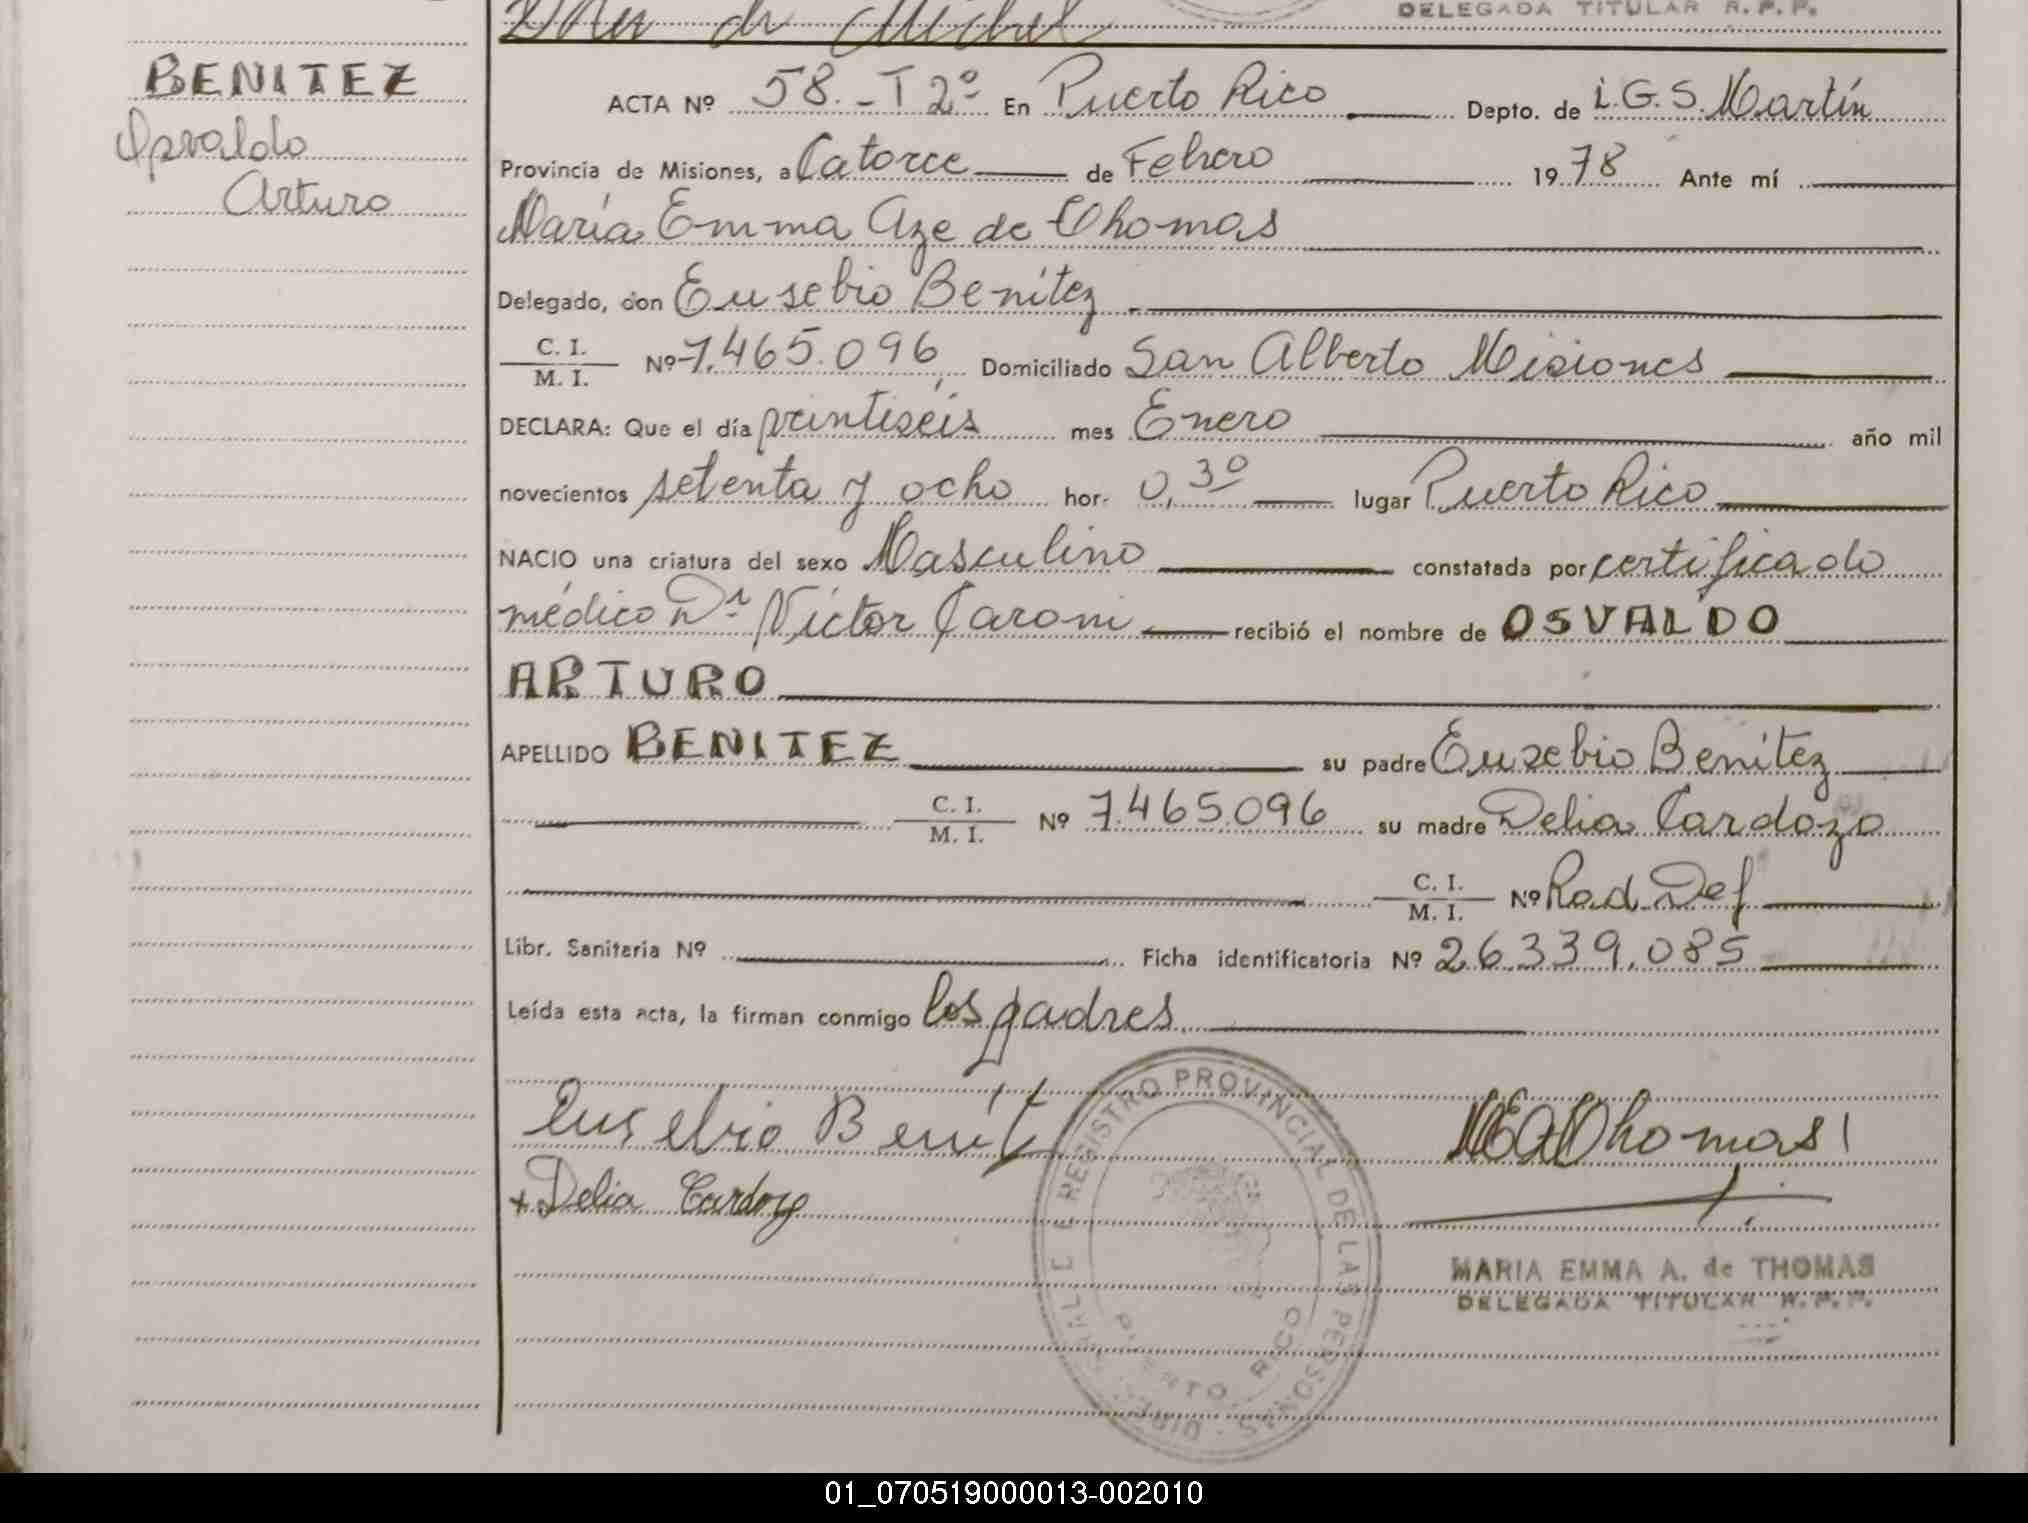 DELEGADA TITULAR R. P. P.
de Michel
BENITEZ
Osvaldo
Arturo
ACTA Nº 58.-T 2º En Puerto Rico Depto. de L.G.S. Martín
Provincia de Misiones, a Catorce de Febrero 1978 Ante mí
María Emma Aze de Thomas
Delegado, don Eusebio Benítez
C. I.
M. I. Nº 7.465.096, Domiciliado San Alberto Misiones
DECLARA: Que el día veintiséis mes Enero año mil
novecientos setenta y ocho hor. 0,30 lugar Puerto Rico
NACIO una criatura del sexo Masculino constatada por certificado
médico Dr Víctor Caroni recibió el nombre de OSVALDO
ARTURO
APELLIDO BENITEZ su padre Eusebio Benítez
C. I.
M. I. Nº 7.465.096 su madre Delia Cardozo
C. I.
M. I. Nº Rad. Def
Libr. Sanitaria Nº Ficha identificatoria Nº 26.339.085
Leída esta acta, la firman conmigo los padres
Eusebio Benit
+ Delia Cardozo
MEAThomas
REGISTRO PROVINCIAL DE LAS PERSONAS
PUERTO RICO
MARIA EMMA A. de THOMAS
DELEGADA TITULAR R. P. P.
01_070519000013-002010